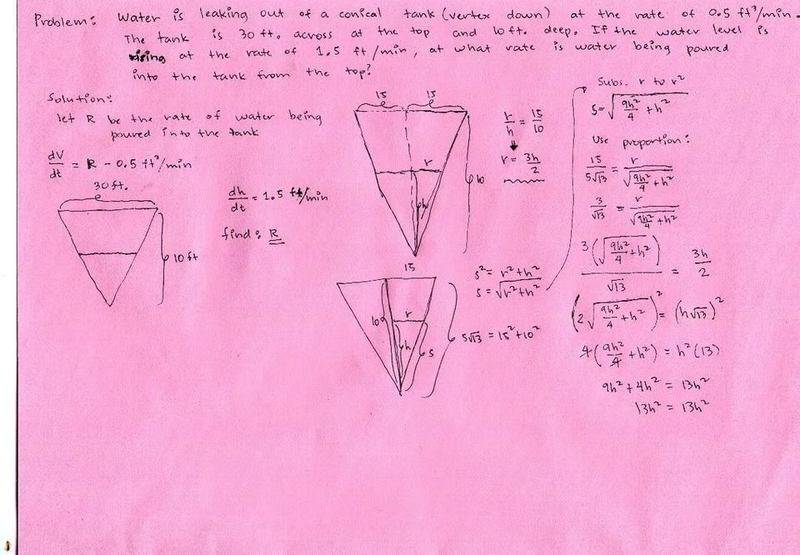 Problem: Water is leaking out of a conical tank (vertex down) at the rate of 0.5 ft³/min.
The tank is 30 ft. across at the top and 10 ft. deep. If the water level is
rising at the rate of 1.5 ft/min, at what rate is water being poured
into the tank from the top?
Solution:
let R be the rate of water being
poured into the tank
dV/dt = R - 0.5 ft³/min
30 ft.
10 ft
dh/dt = 1.5 ft/min
find: R
15 15
r
h
10
r/h = 15/10
r = 3h/2
15
10
r
h
s
s² = r² + h²
s = √(r² + h²)
5√13 = 15² + 10²
Subs. r to r²
s = √(9h²/4 + h²)
Use proportion:
15/5√13 = r/√(9h²/4 + h²)
3/√13 = r/√(9h²/4 + h²)
3(√(9h²/4 + h²))/√13 = 3h/2
(2√(9h²/4 + h²))² = (h√13)²
4(9h²/4 + h²) = h²(13)
9h² + 4h² = 13h²
13h² = 13h²